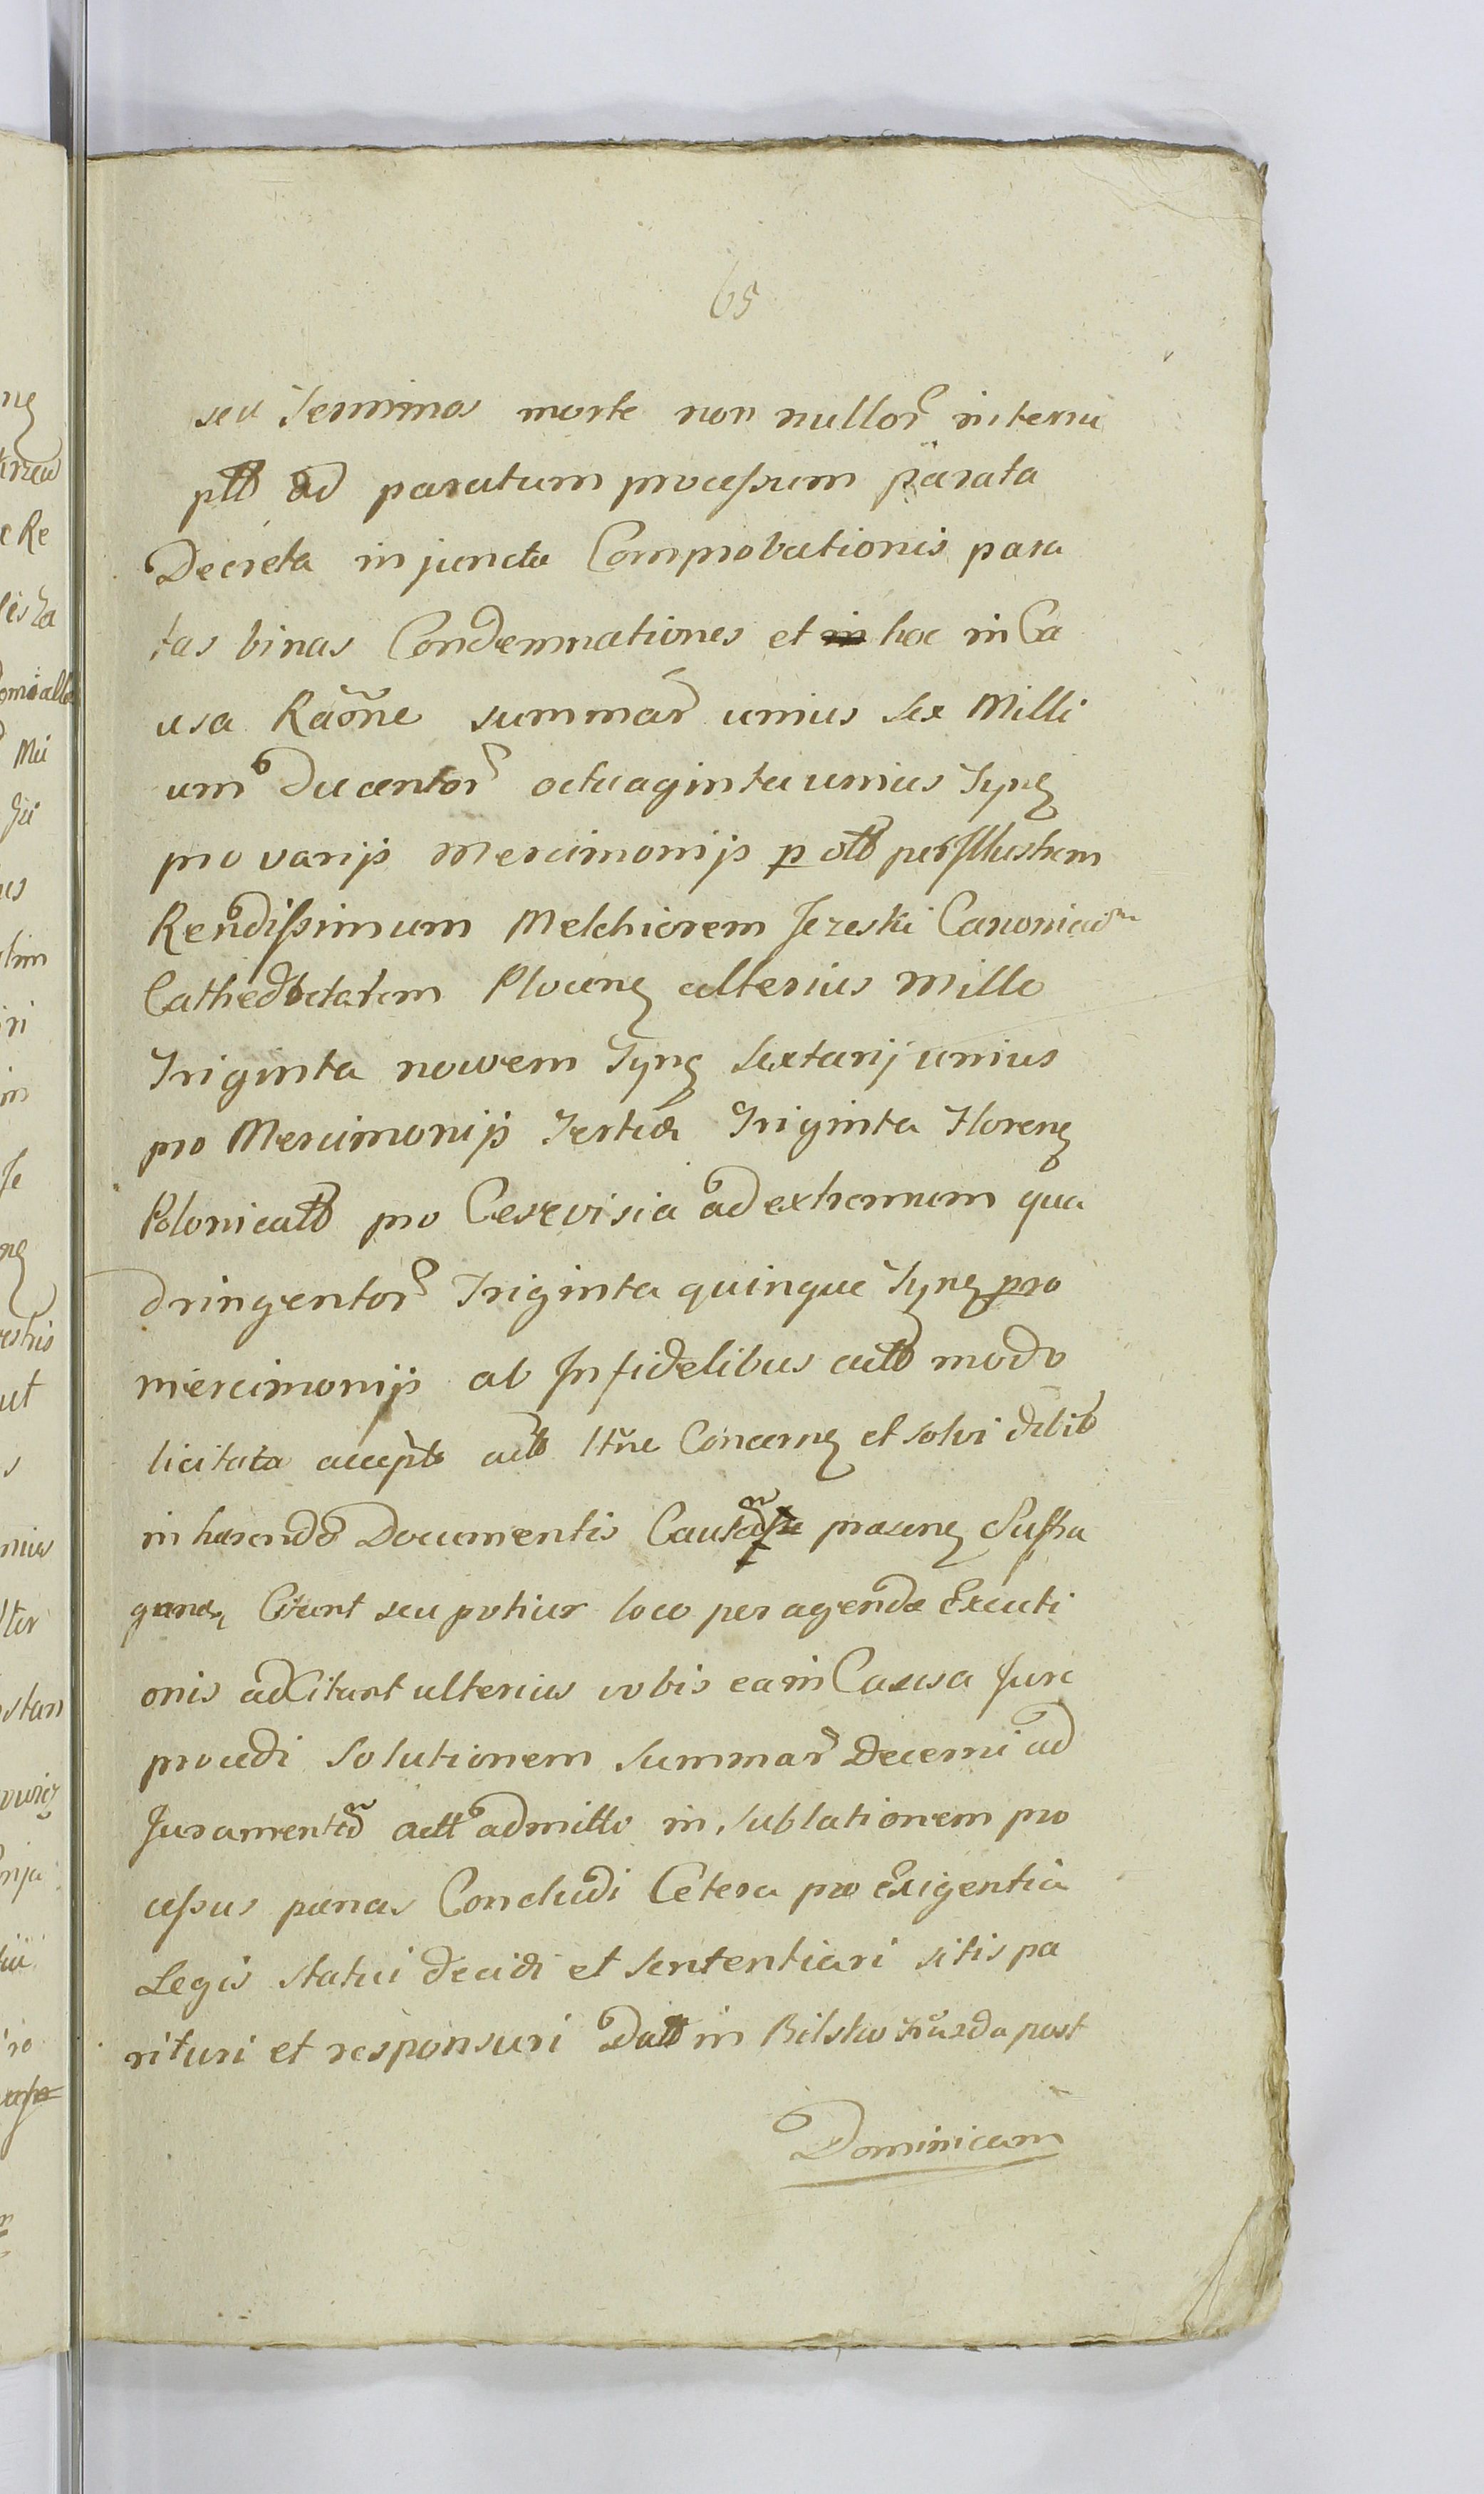 65
seu Terminos morte non nullor interru
ptt ad paratum processum parata
Decreta injuncta Comprobationis para
tas binas Condemnationes et hoc in Ca
usa Raõne summar unius sex Milli
um Ducentor octuaginta unius Tynz
pro varijs Mercimonijs p ott perIllustrem
Rendissimum Melchiorem Jezeski Canonicum
Plocenz alterius Mille
Triginta novem Tynz sextarij unius
pro Mercimonijs Tertia Triginta Florenz
Polonicatt pro Cerevisia ad extremum qua
dringentor Triginta quinque Tynz pro
mercimonijs ab Infidelibus modo
licitata Concernz et solvi debit
in harendo Documentis praesenz Suffra
Citant seu potius loco peragenda Executi
onis adCitant ulterius vobis ea in Causa Jure
procedi solutionem summar Decerni ad
Juramentum actt admitti in sublationem pro
cessus paenas Concludi Cetera pro Exigentia
Legis statui decidi et sententiari sitis pa
rituri et responsuri Datt in Bilsko post
Dominicam